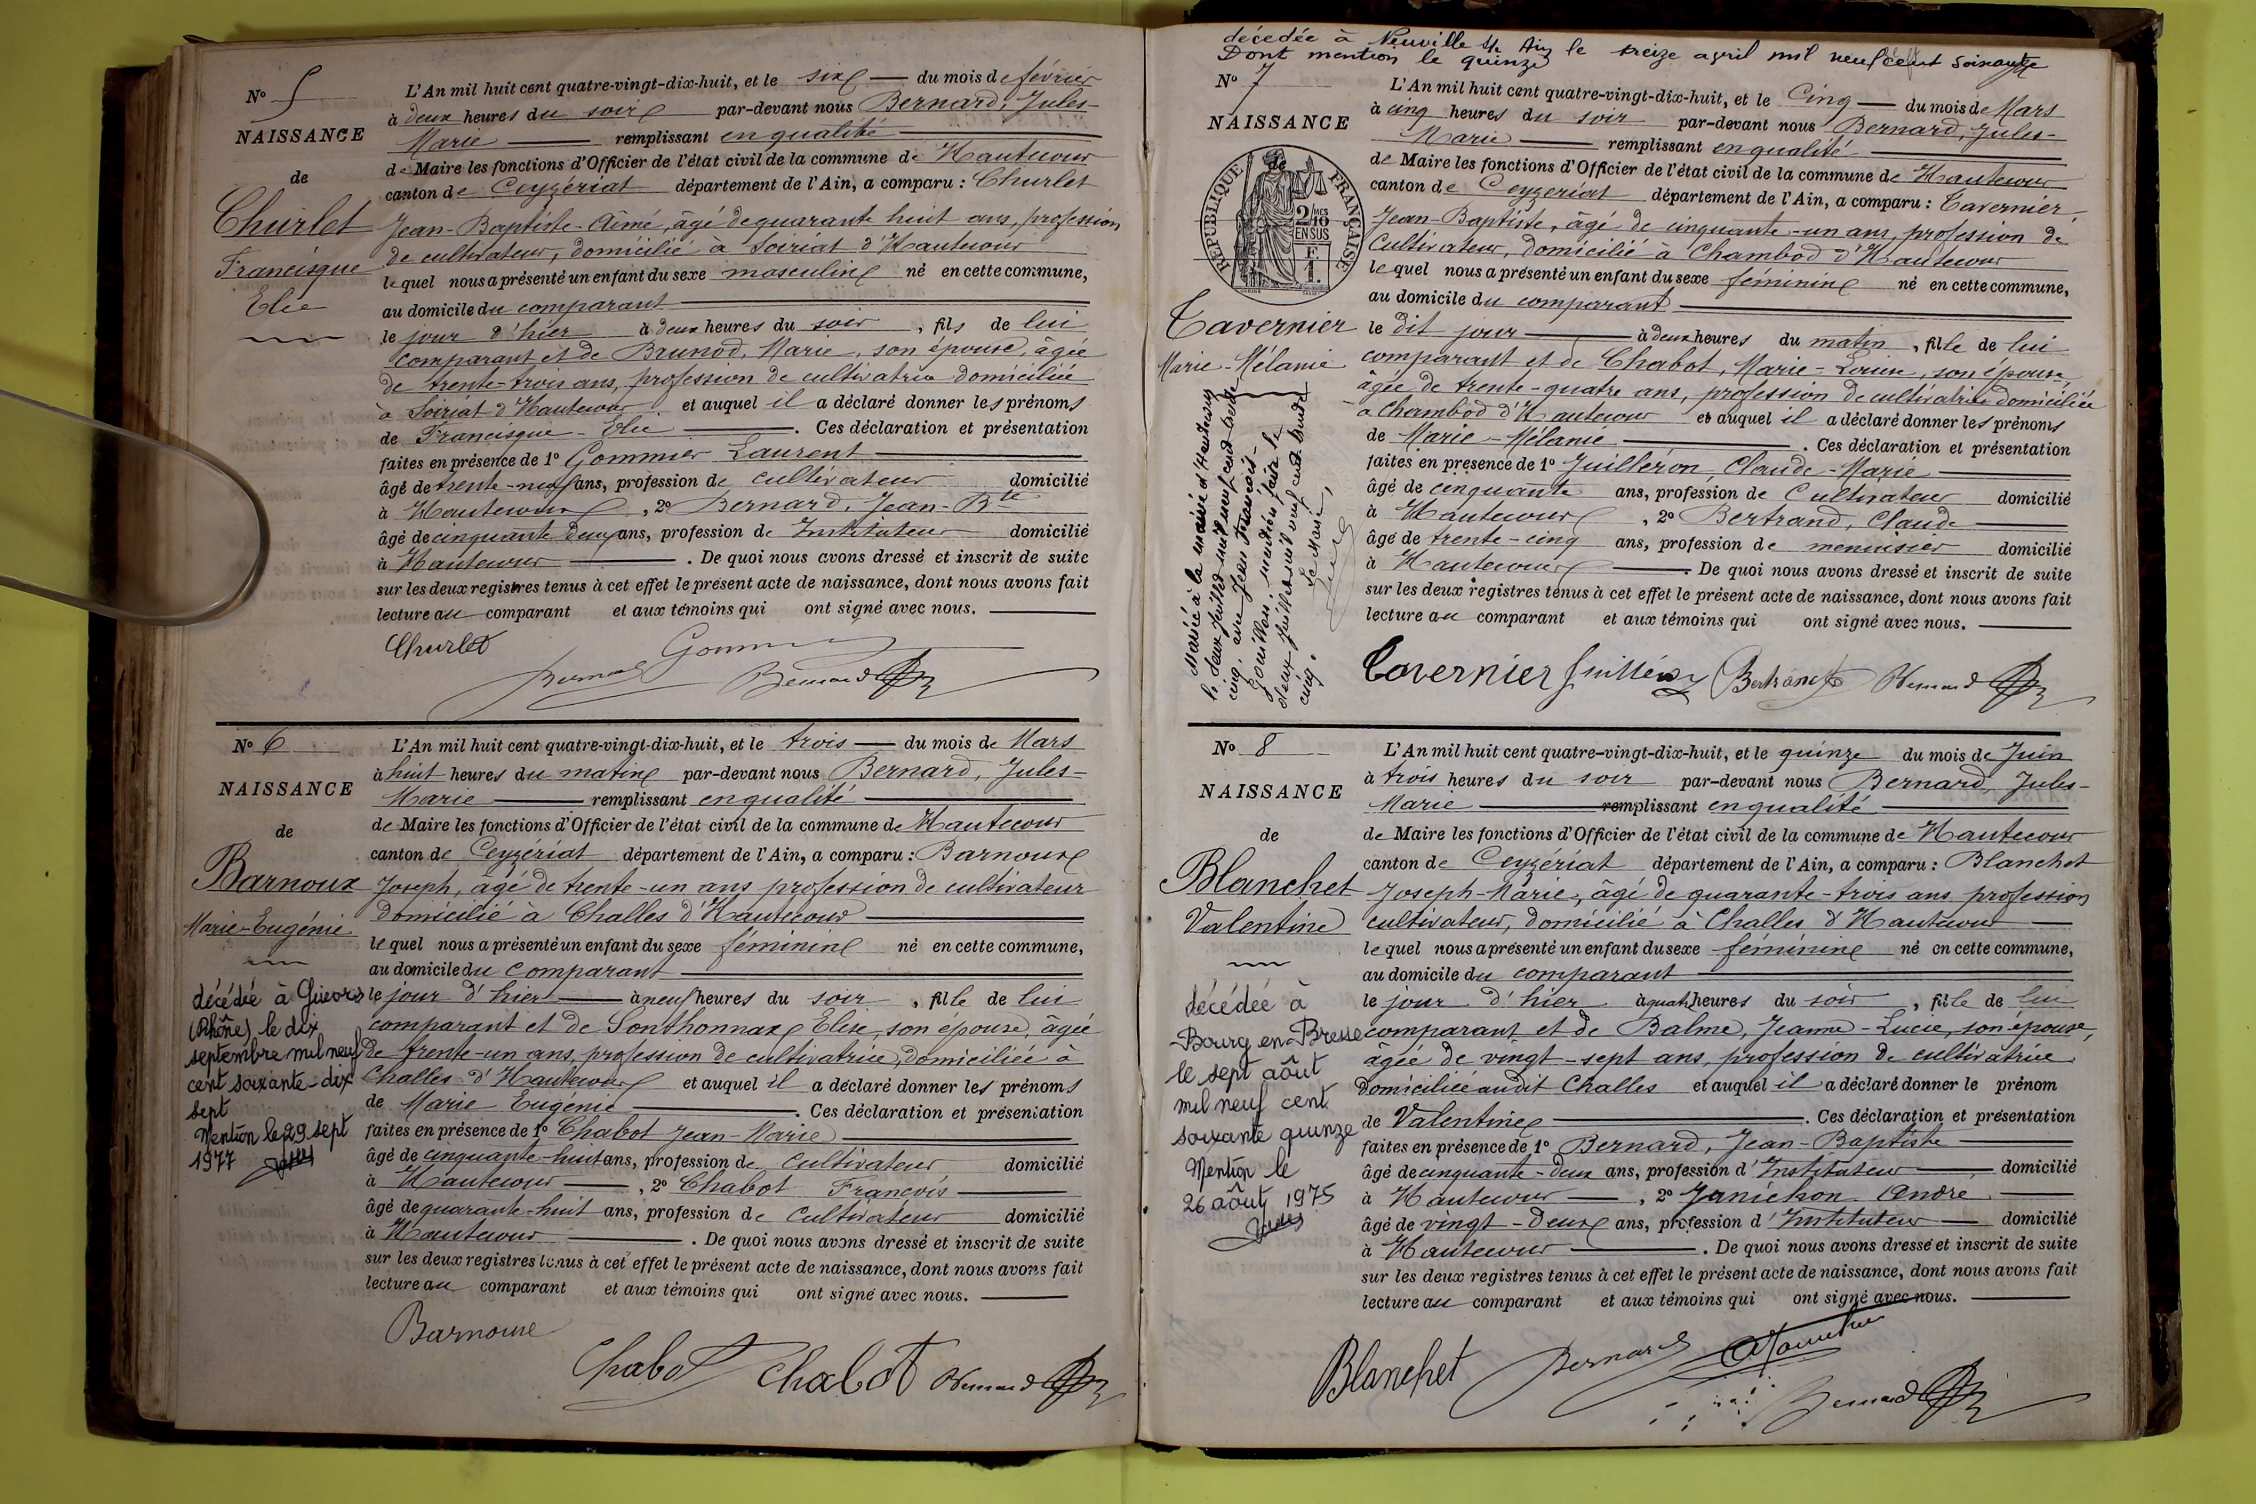 N° 5
NAISSANCE
de
Churlet
Francisque
Elie
L'An mil huit cent quatre-vingt-dix-huit, et le six du mois de février
à deux heures du soir par-devant nous Bernard, Jules-
Marie remplissant en qualité
de Maire les fonctions d'Officier de l'état civil de la commune de Hautecour
canton de Ceyzériat département de l'Ain, a comparu : Churlet
Jean-Baptiste-Aimé, âgé de quarante huit ans, profession
de cultivateur, domicilié à Soiriat d'Hautecour
lequel nous a présenté un enfant du sexe masculin né en cette commune,
au domicile du comparant
le jour d'hier à deux heures du soir, fils de lui
comparant et de Brunod, Marie, son épouse, âgée
de trente-trois ans, profession de cultivatrice domiciliée
à Soiriat d'Hautecour et auquel il a déclaré donner les prénoms
de Francisque-Elie. Ces déclaration et présentation
faites en présence de 1° Gommier Laurent
âgé de trente-neuf ans, profession de cultivateur domicilié
à Hautecour, 2° Bernard, Jean-Bte
âgé de cinquante deux ans, profession de Instituteur domicilié
à Hautecour. De quoi nous avons dressé et inscrit de suite
sur les deux registres tenus à cet effet le présent acte de naissance, dont nous avons fait
lecture au comparant et aux témoins qui ont signé avec nous.
Churlet
Bernard Bernard
N° 6
NAISSANCE
de
Barnoux
Marie-Eugénie
décédée à Givors
(Rhône) le dix
septembre mil neuf
cent soixante-dix
sept
Mention le 29 sept
1977
L'An mil huit cent quatre-vingt-dix-huit, et le trois du mois de Mars
à huit heures du matin par-devant nous Bernard, Jules-
Marie remplissant en qualité
de Maire les fonctions d'Officier de l'état civil de la commune de Hautecour
canton de Ceyzériat département de l'Ain, a comparu : Barnoux
Joseph, âgé de trente-un ans profession de cultivateur
domicilié à Challes d'Hautecour
lequel nous a présenté un enfant du sexe féminin né en cette commune,
au domicile du comparant
le jour d'hier à neuf heures du soir, fille de lui
comparant et de Sonthonnax Elise, son épouse, âgée
de trente-un ans, profession de cultivatrice, domiciliée à
Challes d'Hautecour et auquel il a déclaré donner les prénoms
de Marie Eugénie. Ces déclaration et présentation
faites en présence de 1° Chabot Jean-Marie
âgé de cinquante-huit ans, profession de cultivateur domicilié
à Hautecour, 2° Chabot François
âgé de quarante-huit ans, profession de cultivateur domicilié
à Hautecour. De quoi nous avons dressé et inscrit de suite
sur les deux registres tenus à cet effet le présent acte de naissance, dont nous avons fait
lecture au comparant et aux témoins qui ont signé avec nous.
Barnoux
Chabot Chabot Bernard
décédée à Neuville s/ Ain le treize avril mil neuf cent soixante
Dont mention le quinze
N° 7
NAISSANCE
de
RÉPUBLIQUE FRANÇAISE
2/10 EN SUS
F. 1.
Tavernier
Marie-Mélanie
Mariée à la mairie d'Hautecour
le deux juillet mil neuf cent trente
cinq, avec Jean François
Gouillon, mention faite le
deux juillet mil neuf cent trente
cinq.
Le Maire,
L'An mil huit cent quatre-vingt-dix-huit, et le Cinq du mois de Mars
à cinq heures du soir par-devant nous Bernard, Jules-
Marie remplissant en qualité
de Maire les fonctions d'Officier de l'état civil de la commune de Hautecour
canton de Ceyzériat département de l'Ain, a comparu : Tavernier,
Jean-Baptiste, âgé de cinquante-un ans, profession de
Cultivateur, domicilié à Chambod d'Hautecour
lequel nous a présenté un enfant du sexe féminin né en cette commune,
au domicile du comparant
le dit jour à deux heures du matin, fille de lui
comparant et de Chabot, Marie-Louise, son épouse
âgée de trente-quatre ans, profession de cultivatrice domiciliée
à Chambod d'Hautecour et auquel il a déclaré donner les prénoms
de Marie-Mélanie. Ces déclaration et présentation
faites en présence de 1° Juilleron, Claude-Marie
âgé de cinquante ans, profession de Cultivateur domicilié
à Hautecour, 2° Bertrand, Claude
âgé de trente-cinq ans, profession de menuisier domicilié
à Hautecour. De quoi nous avons dressé et inscrit de suite
sur les deux registres tenus à cet effet le présent acte de naissance, dont nous avons fait
lecture au comparant et aux témoins qui ont signé avec nous.
Tavernier Juilleron Bertrand Bernard
N° 8
NAISSANCE
de
Blanchet
Valentine
décédée à
Bourg en Bresse
le sept août
mil neuf cent
soixante quinze
Mention le
26 août 1975
L'An mil huit cent quatre-vingt-dix-huit, et le quinze du mois de Juin
à trois heures du soir par-devant nous Bernard, Jules-
Marie remplissant en qualité
de Maire les fonctions d'Officier de l'état civil de la commune de Hautecour
canton de Ceyzériat département de l'Ain, a comparu : Blanchet
Joseph-Marie, âgé de quarante-trois ans profession
cultivateur, domicilié à Challes d'Hautecour
lequel nous a présenté un enfant du sexe féminin né en cette commune,
au domicile du comparant
le jour d'hier à quatre heures du soir, fille de lui
comparant et de Balme, Jeanne-Lucie, son épouse,
âgée de vingt-sept ans, profession de cultivatrice
domiciliée audit Challes et auquel il a déclaré donner le prénom
de Valentine. Ces déclaration et présentation
faites en présence de 1° Bernard, Jean-Baptiste
âgé de cinquante-deux ans, profession d'Instituteur domicilié
à Hautecour, 2° Janichon André
âgé de vingt-deux ans, profession d'Instituteur domicilié
à Hautecour. De quoi nous avons dressé et inscrit de suite
sur les deux registres tenus à cet effet le présent acte de naissance, dont nous avons fait
lecture au comparant et aux témoins qui ont signé avec nous.
Blanchet Bernard
Bernard